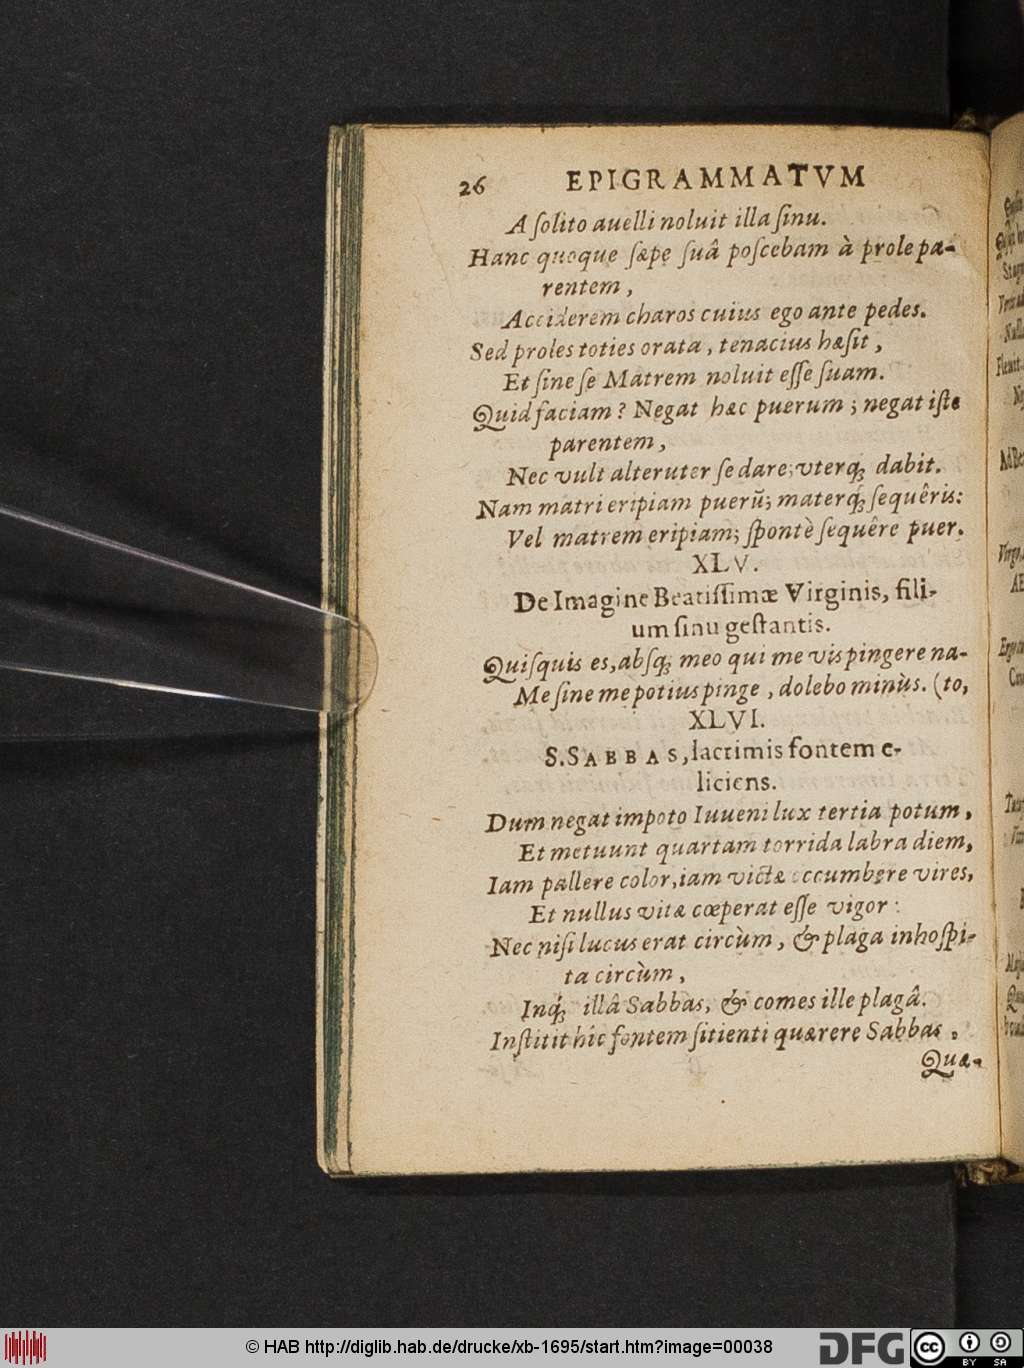 26 EPIGRAMMATVM
A ſolito auelli noluit illa ſinu.
Hanc quoque ſæpe ſuâ poſcebam à prole pa-
rentem,
Acciderem charos cuius ego ante pedes.
Sed proles toties orata, tenacius hæſit,
Et ſine ſe Matrem noluit eſſe ſuam.
Quid faciam? Negat hæc puerum; negat iſte
parentem,
Nec vult alteruter ſe dare; vterq́; dabit.
Nam matri eripiam puerū; materq́; ſequêris:
Vel matrem eripiam; ſpontè ſequêre puer.
XLV.
De Imagine Beatiſſimæ Virginis, fili-
um ſinu geſtantis.
Quiſquis es, abſq́; meo qui me vis pingere na-
Me ſine me potius pinge, dolebo minùs. (to,
XLVI.
S. SABBAS, lacrimis fontem e-
liciens.
Dum negat impoto Iuueni lux tertia potum,
Et metuunt quartam torrida labra diem,
Iam pallere color, iam victæ occumbere vires,
Et nullus vitæ cœperat eſſe vigor:
Nec niſi lucus erat circùm, & plaga inhoſpi-
ta circùm,
Inq́; illâ Sabbas, & comes ille plagâ.
Inſtitit hîc fontem ſitienti quærere Sabbas.
Quæ-
© HAB http://diglib.hab.de/drucke/xb-1695/start.htm?image=00038
DFG
cc BY SA